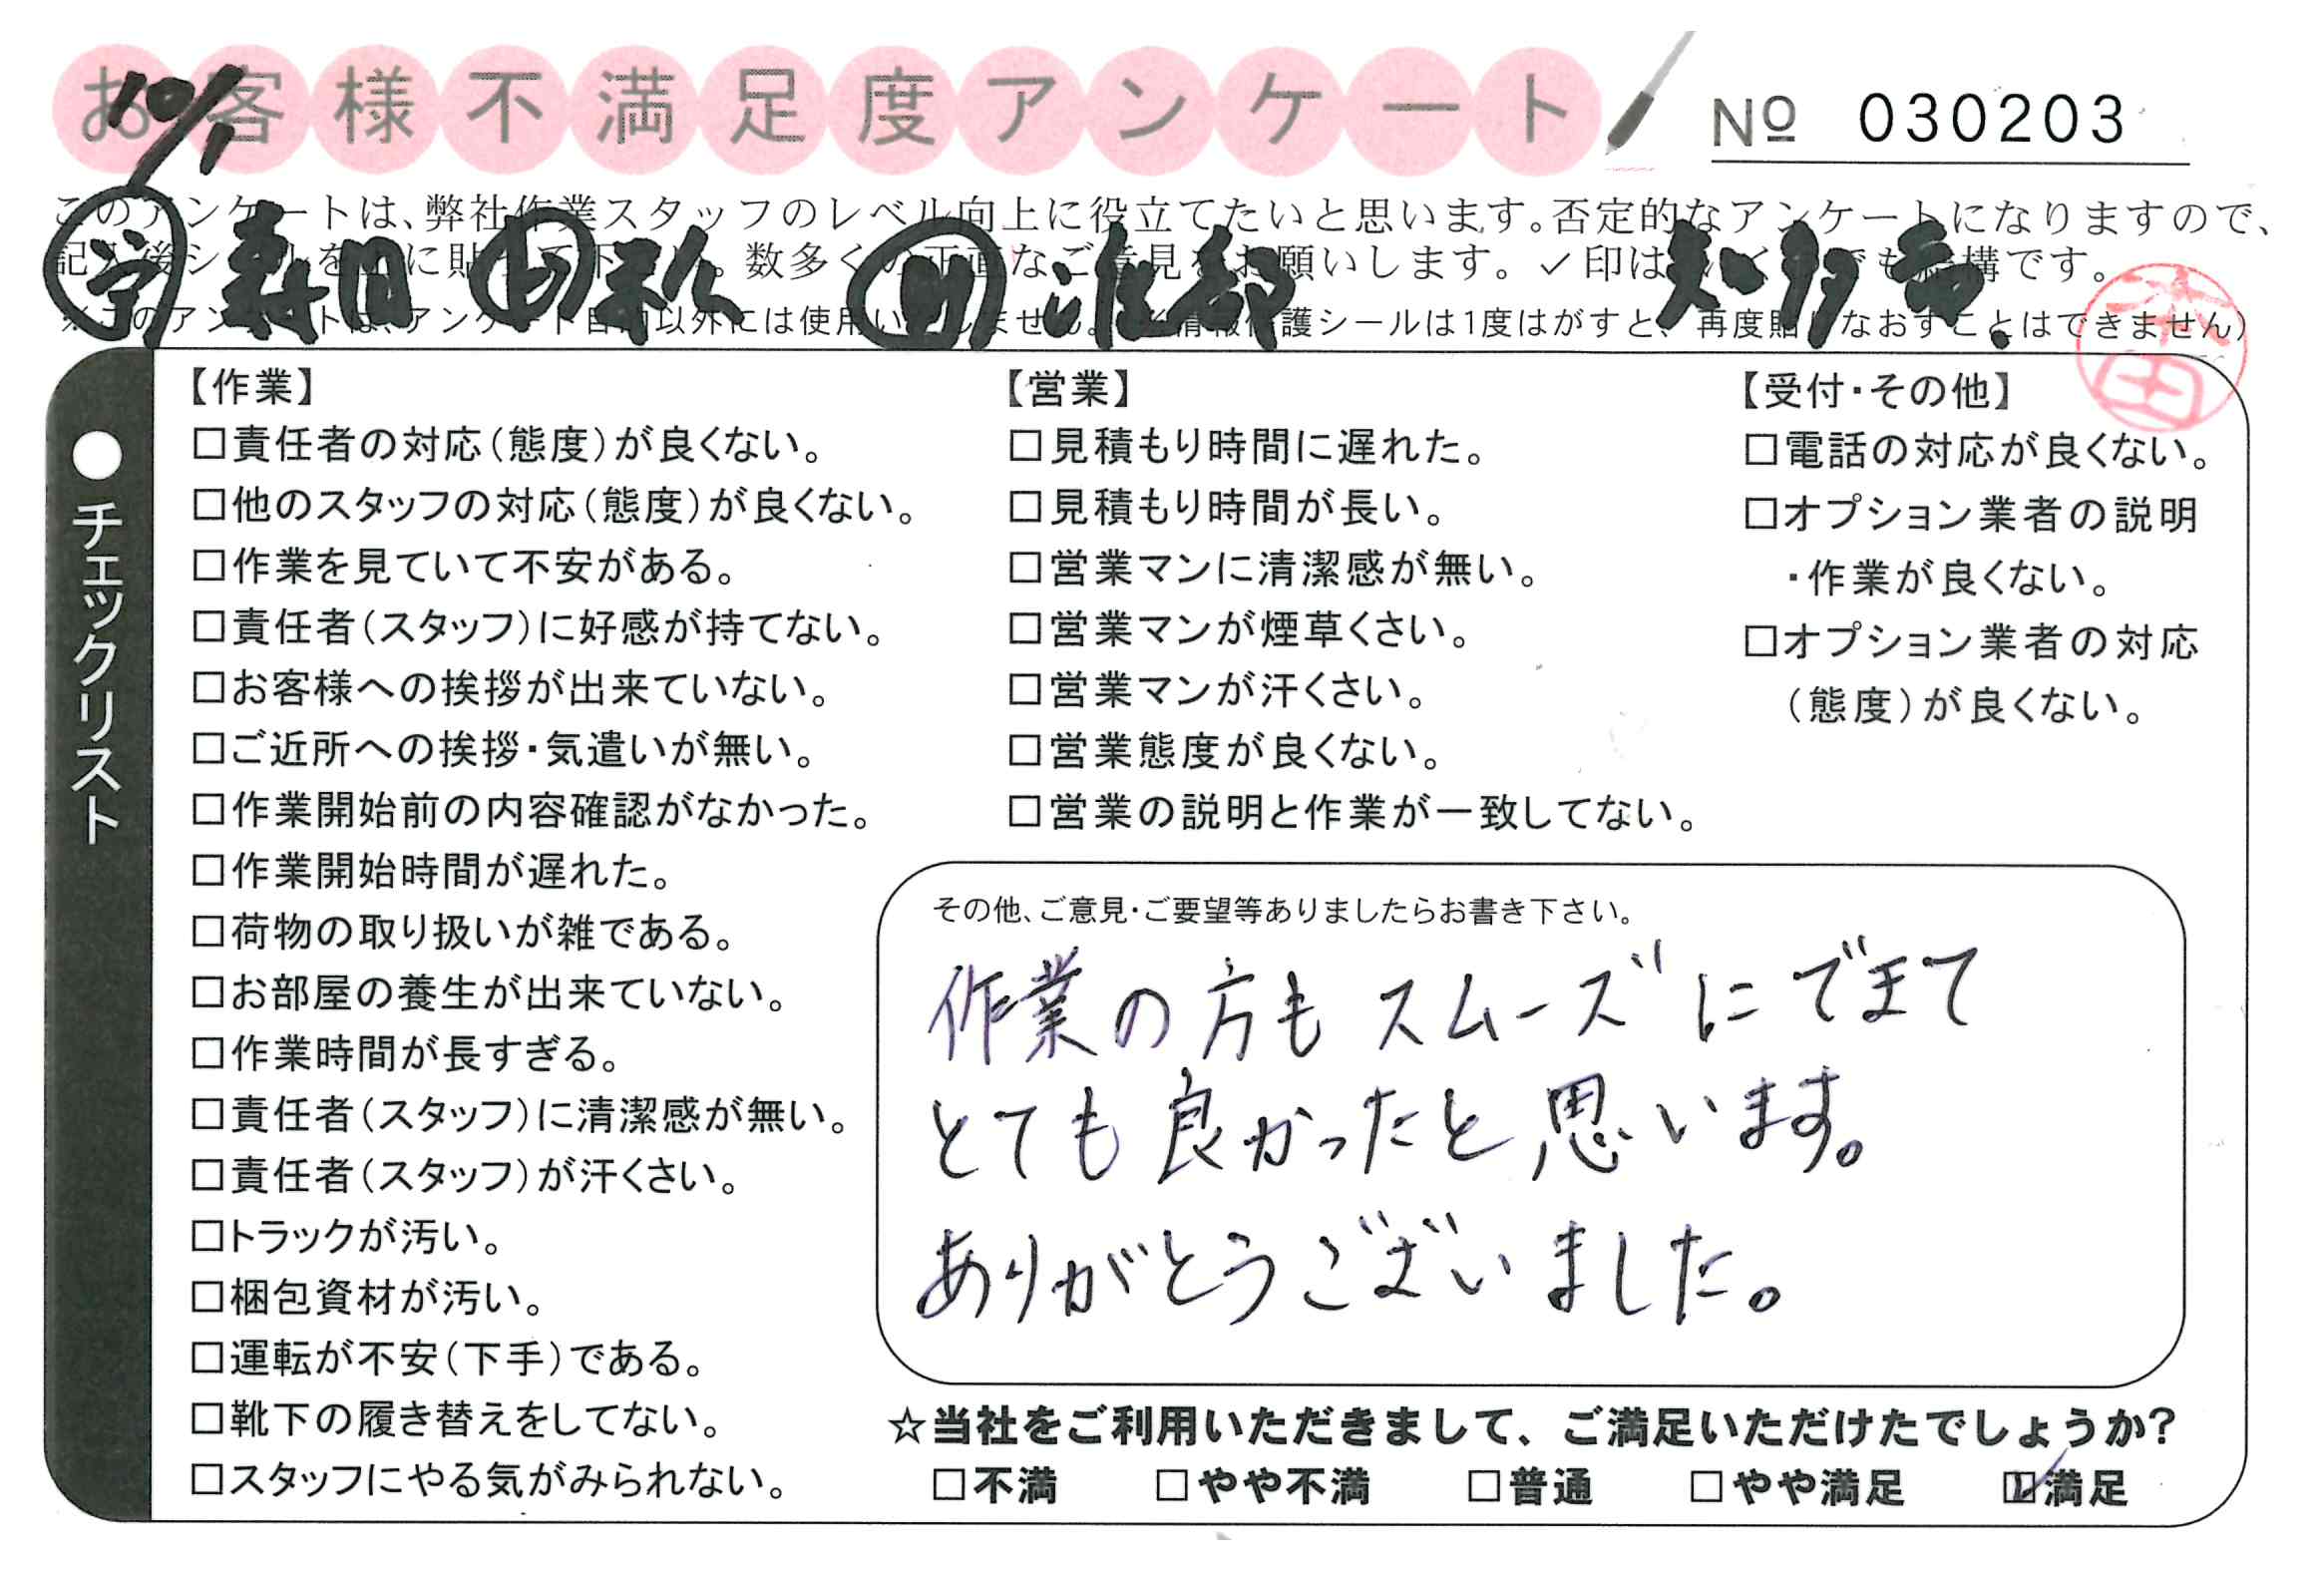 お客様不満足度アンケート
№ 030203
10/1
このアンケートは、弊社作業スタッフのレベル向上に役立てたいと思います。否定的なアンケートになりますので、
記入後シールを に貼って下さい。数多くの正直なご意見をお願いします。✓印はいくつでも結構です。
※このアンケートは、アンケート目的以外には使用いたしません。 情報保護シールは1度はがすと、再度貼りなおすことはできません)
本田
●チェックリスト
【作業】
□責任者の対応(態度)が良くない。
□他のスタッフの対応(態度)が良くない。
□作業を見ていて不安がある。
□責任者(スタッフ)に好感が持てない。
□お客様への挨拶が出来ていない。
□ご近所への挨拶・気遣いが無い。
□作業開始前の内容確認がなかった。
□作業開始時間が遅れた。
□荷物の取り扱いが雑である。
□お部屋の養生が出来ていない。
□作業時間が長すぎる。
□責任者(スタッフ)に清潔感が無い。
□責任者(スタッフ)が汗くさい。
□トラックが汚い。
□梱包資材が汚い。
□運転が不安(下手)である。
□靴下の履き替えをしてない。
□スタッフにやる気がみられない。
【営業】
□見積もり時間に遅れた。
□見積もり時間が長い。
□営業マンに清潔感が無い。
□営業マンが煙草くさい。
□営業マンが汗くさい。
□営業態度が良くない。
□営業の説明と作業が一致してない。
【受付・その他】
□電話の対応が良くない。
□オプション業者の説明
・作業が良くない。
□オプション業者の対応
(態度)が良くない。
その他、ご意見・ご要望等ありましたらお書き下さい。
作業の方もスムーズにできて
とても良かったと思います。
ありがとうございました。
☆当社をご利用いただきまして、ご満足いただけたでしょうか?
□不満 □やや不満 □普通 □やや満足 ☑満足